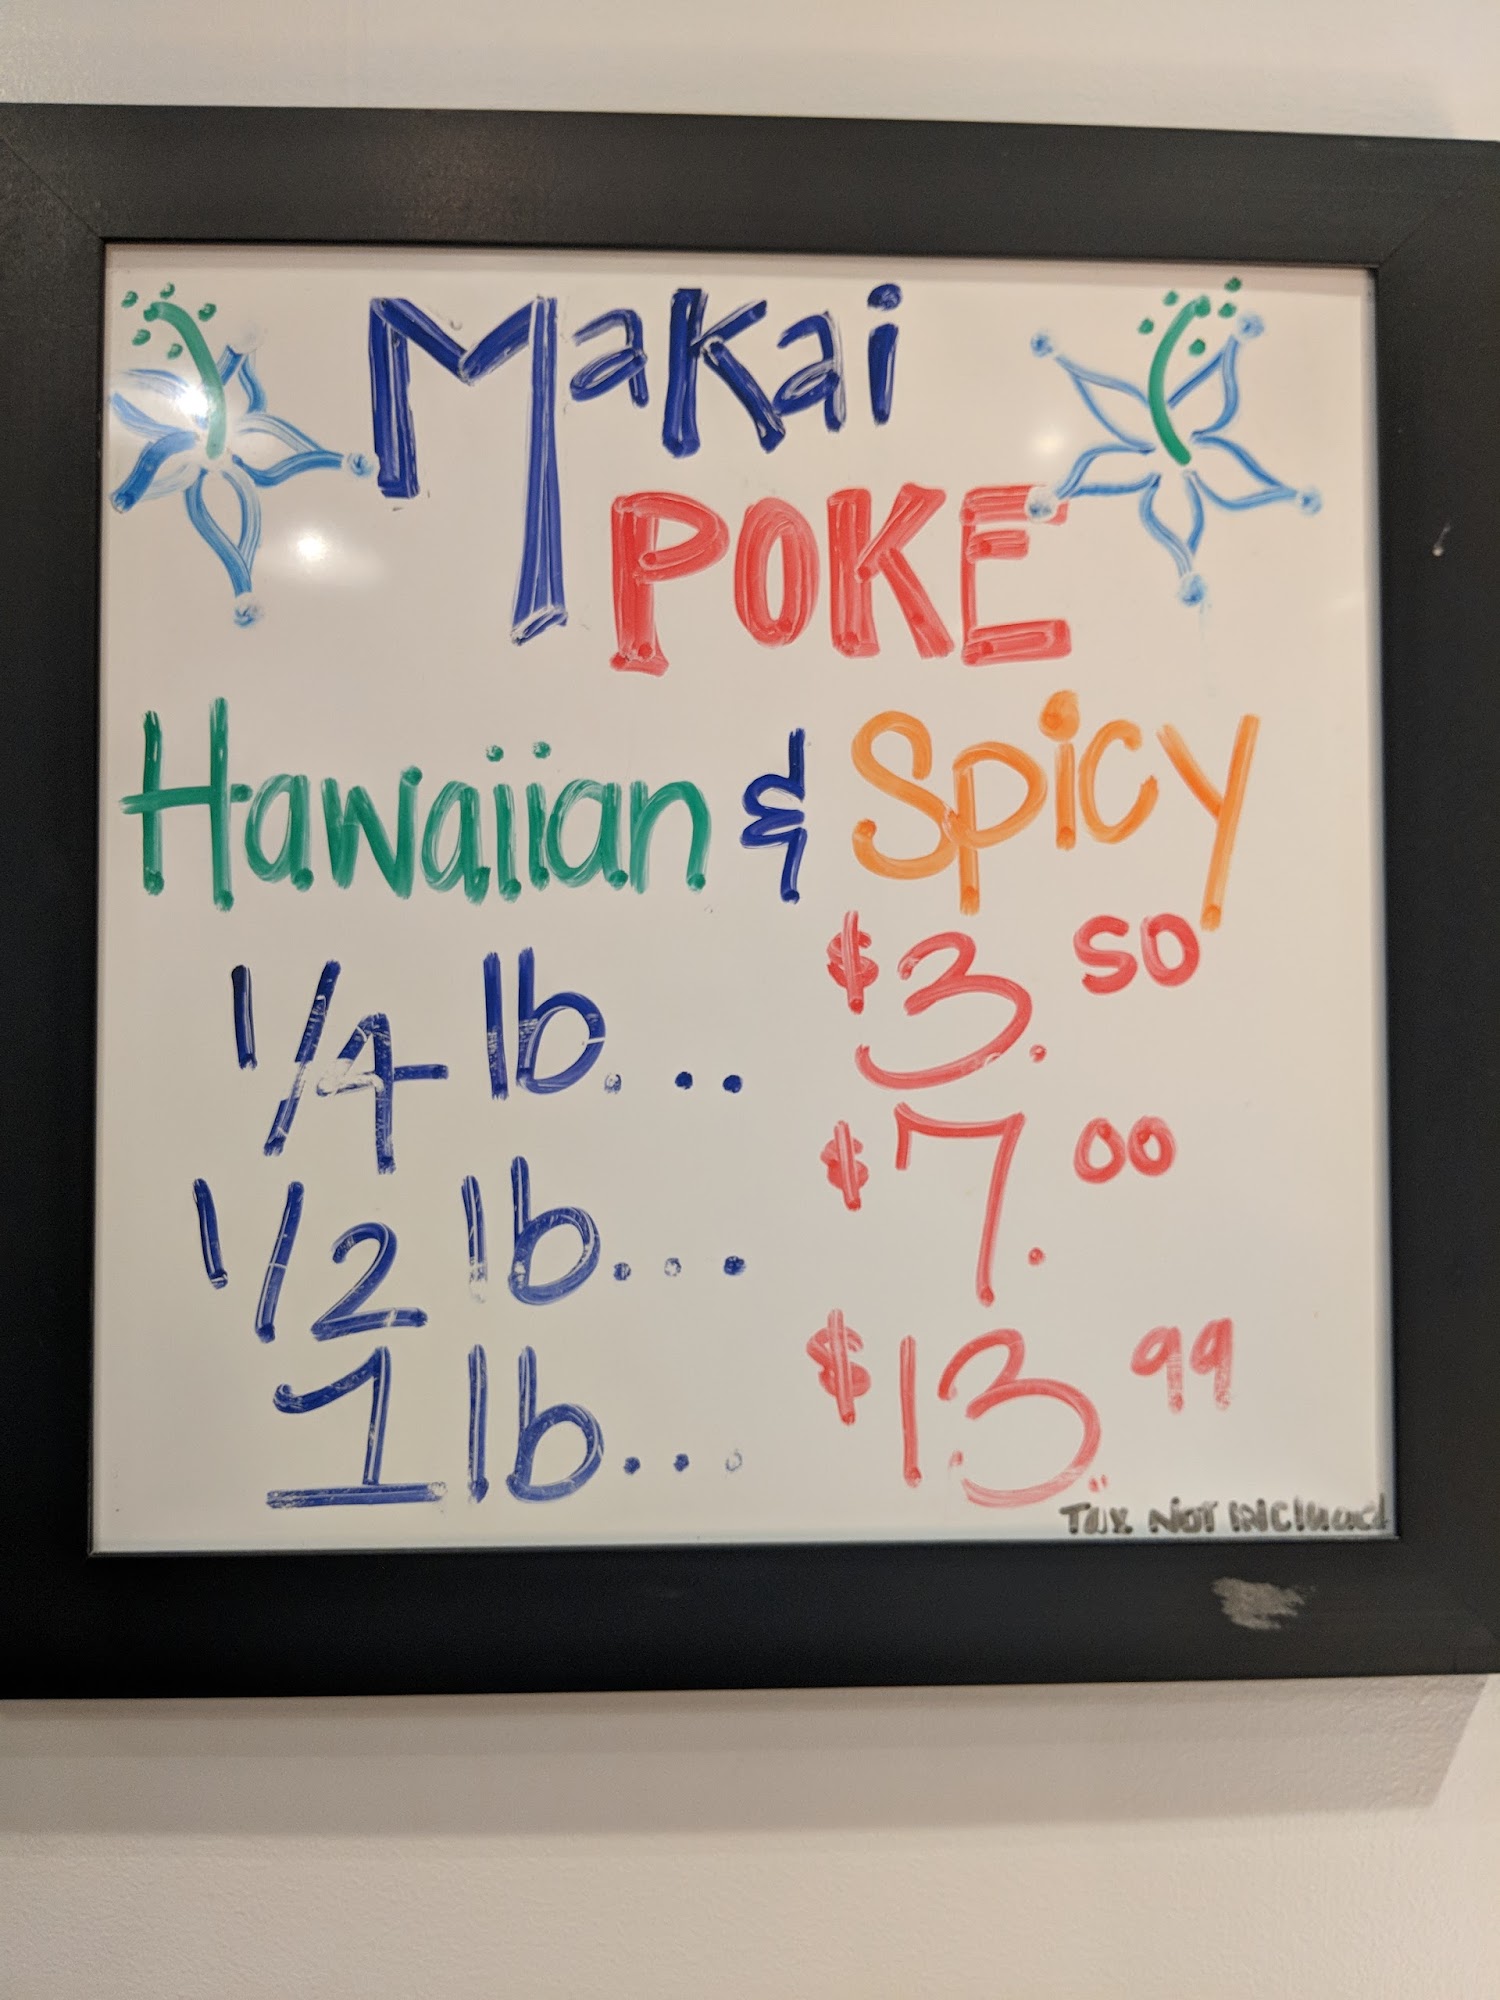 Makai
POKE
Hawaiian & Spicy
1/4 lb.... $3.50
1/2 lb.... $7.00
1 lb.... $13.99
Tax NOT INCluded